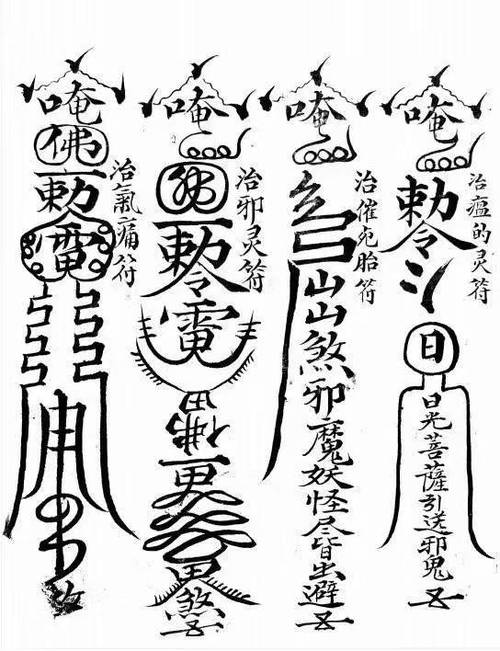 唵
勅令
日
日光菩薩引送邪鬼
治瘟的灵符
唵
山山煞邪魔妖怪尽皆出避
治催胎符
唵
佛
勅令
雷
煞
治邪灵符
唵
佛
勅
雷
治氣痛符